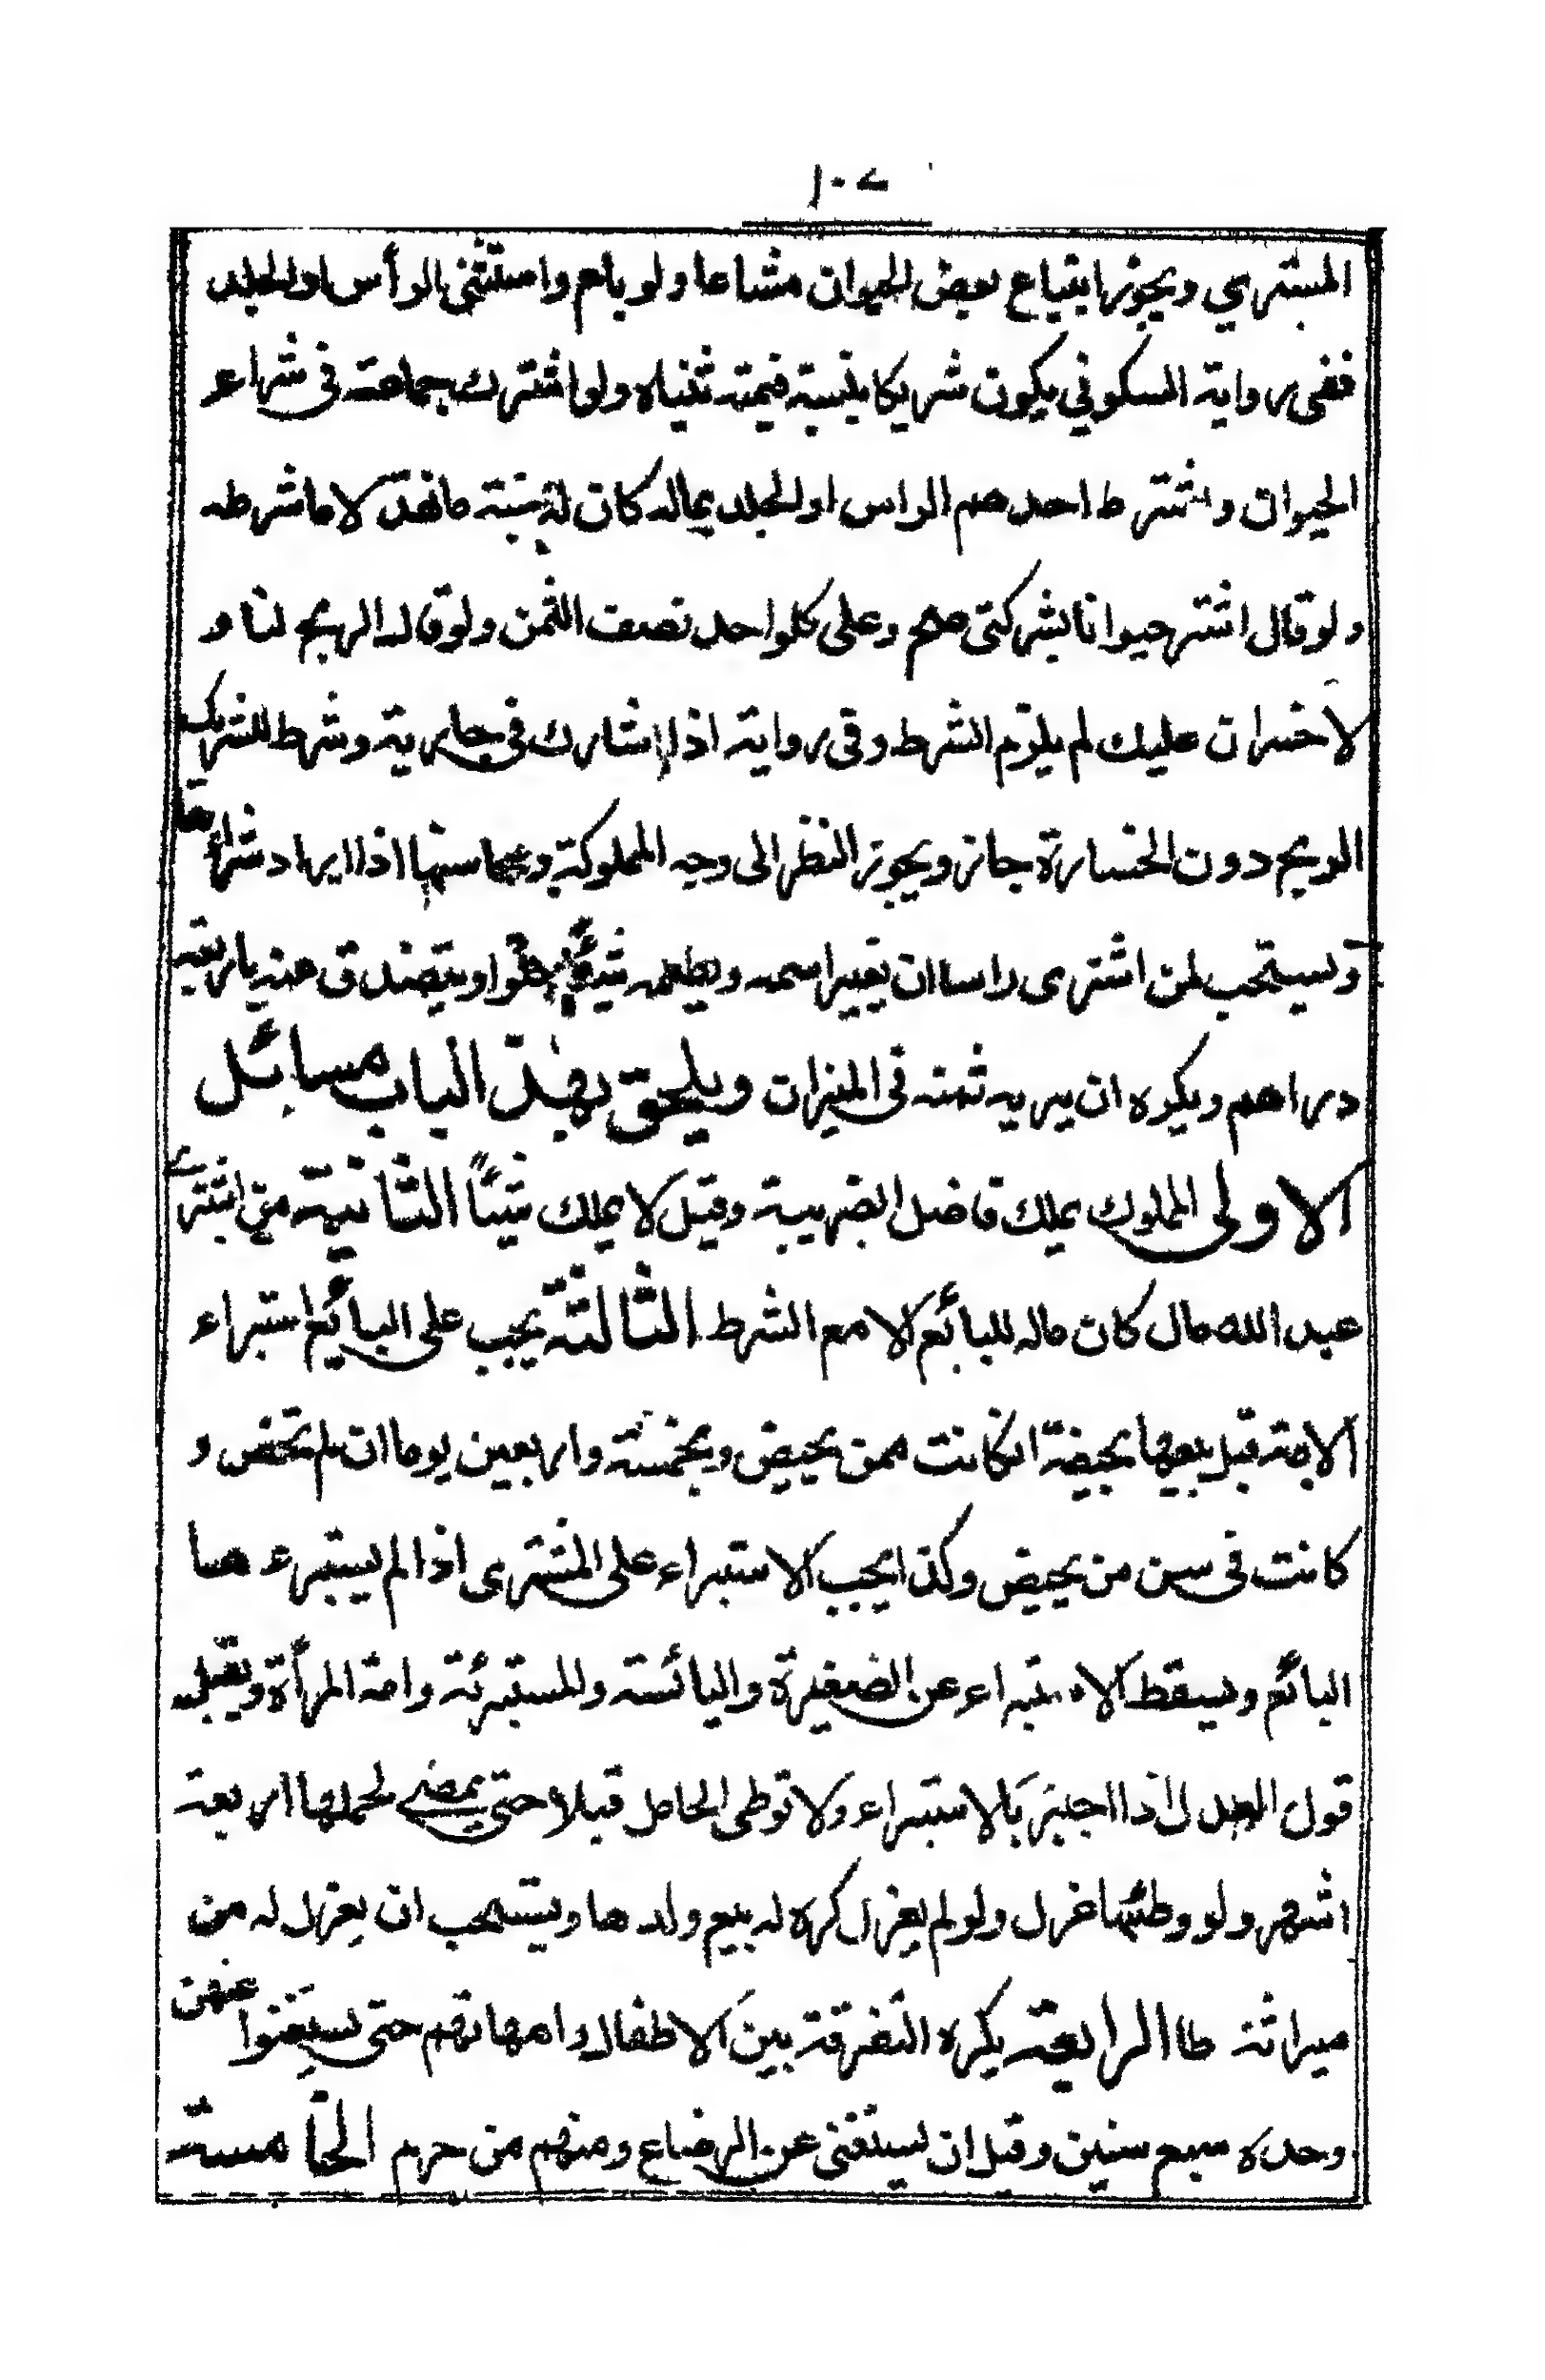 ١٠٧
المشتري ويجوز ابتياع بعض الحيوان مشاعا ولو باع واستثنى الرأس او الجلد
ففى رواية السكوني يكون شريكا بنسبة قيمة ثنياه ولو اشترك جماعة فى شراء
الحيوان واشترط احدهم الراس او الجلد بماله كان له بنسبة ما نقد لا ما شرطه
ولو قال اشتر حيوانا بشركتى صح وعلى كلواحد نصف الثمن ولو قال الربح لنا و
لا خسران عليك لم يلزم الشرط وفى رواية اذا شارك فى جارية وشرط للشريك
الربح دون الخسارة جاز ويجوز النظر الى وجه المملوكة ومحاسنها اذا اراد شرائها
ويستحب لمن اشترى راسا ان يغير اسمه ويطعمه شيئا حلوا ويتصدق عنه باربعة
دراهم ويكره ان يريه ثمنه فى الميزان ويلحق بهذا الباب مسائل
الاولى المملوك يملك فاضل الضريبة وقيل لا يملك شيئًا الثانية من اشترى
عبد الله مال كان ماله للبائع الا مع الشرط الثالثة يجب على البائع استبراء
الامة قبل بيعها بحيضة انكانت ممن يحيض وبخمسة واربعين يوما ان لم تحض و
كانت فى سن من يحيض وكذا يجب الاستبراء على المشترى اذا لم يستبرء ها
البائع ويسقط الاستبراء عن الصغيرة واليائسة والمستبرئة وامة المرأة ويقبل
قول العدل اذا اخبر بالاستبراء ولا توطى الحامل قبلا حتى يمضى لحملها اربعة
اشهر ولو وطئها عزل ولو لم يعزل كره له بيع ولدها ويستحب ان يعزل له من
ميراثه طا الرابعة يكره التفرقة بين الاطفال وامهاتهم حتى يستغنوا عنهن
وحده سبع سنين وقيل ان يستغنى عن الرضاع ومنهم من حرم الخامسة